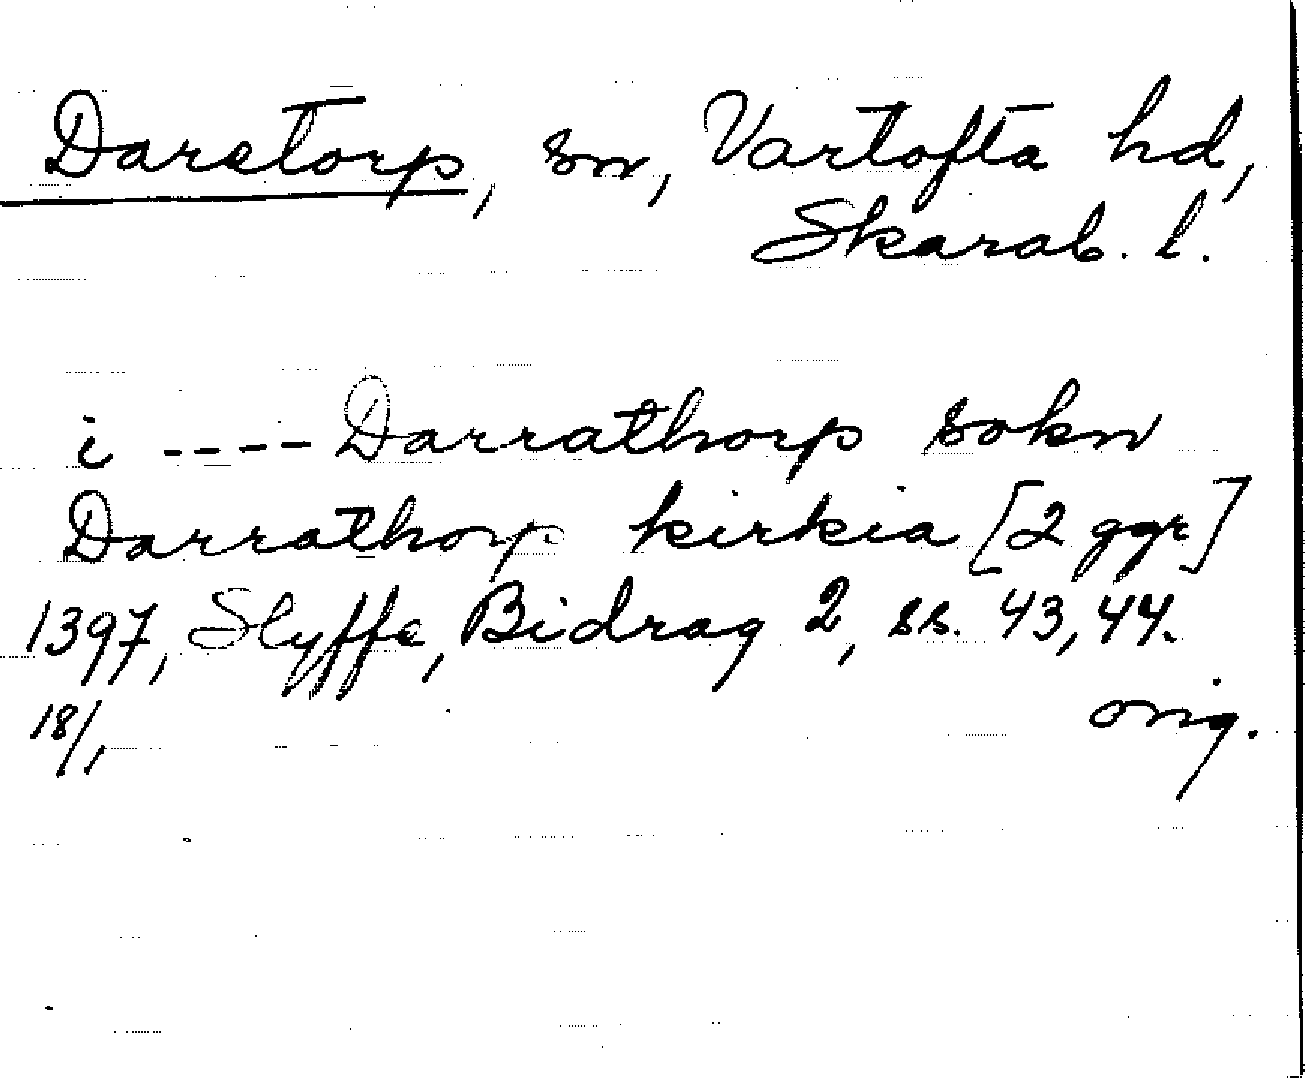 Daretorp, sn, Vartofta hd,
Skarab. l.
i ---- Darrathorp sokn
Darrathorp kirkia [2 ggr]
1397, Styffe, Bidrag 2, ss. 43, 44.
18/1 orig.